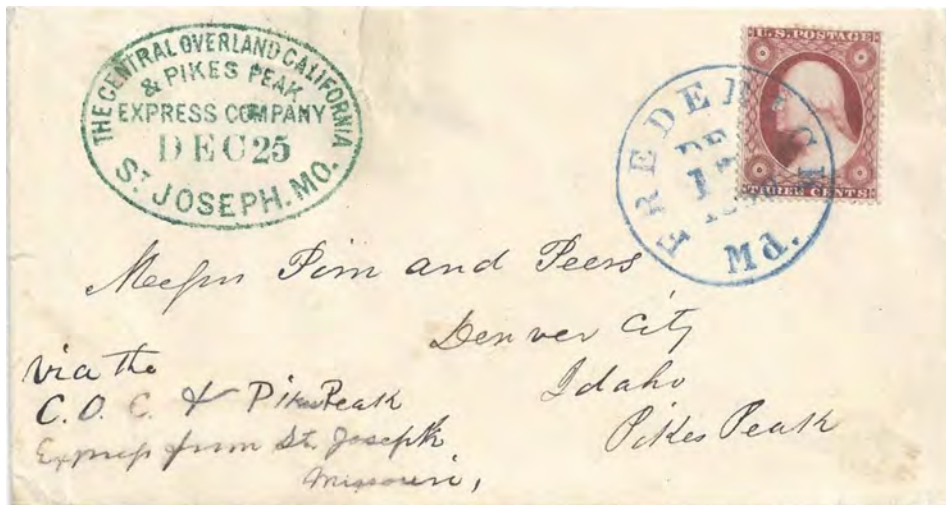 THE CENTRAL OVERLAND CALIFORNIA
& PIKES PEAK
EXPRESS COMPANY
DEC 25
ST JOSEPH. MO.
U.S. POSTAGE
THREE CENTS
FREDERICK
DE
17
Md.
Messrs Pim and Peers
Denver City
Idaho
Pikes Peak
via the
C. O. C. & Pikes Peak
Express from St. Joseph
Missouri,